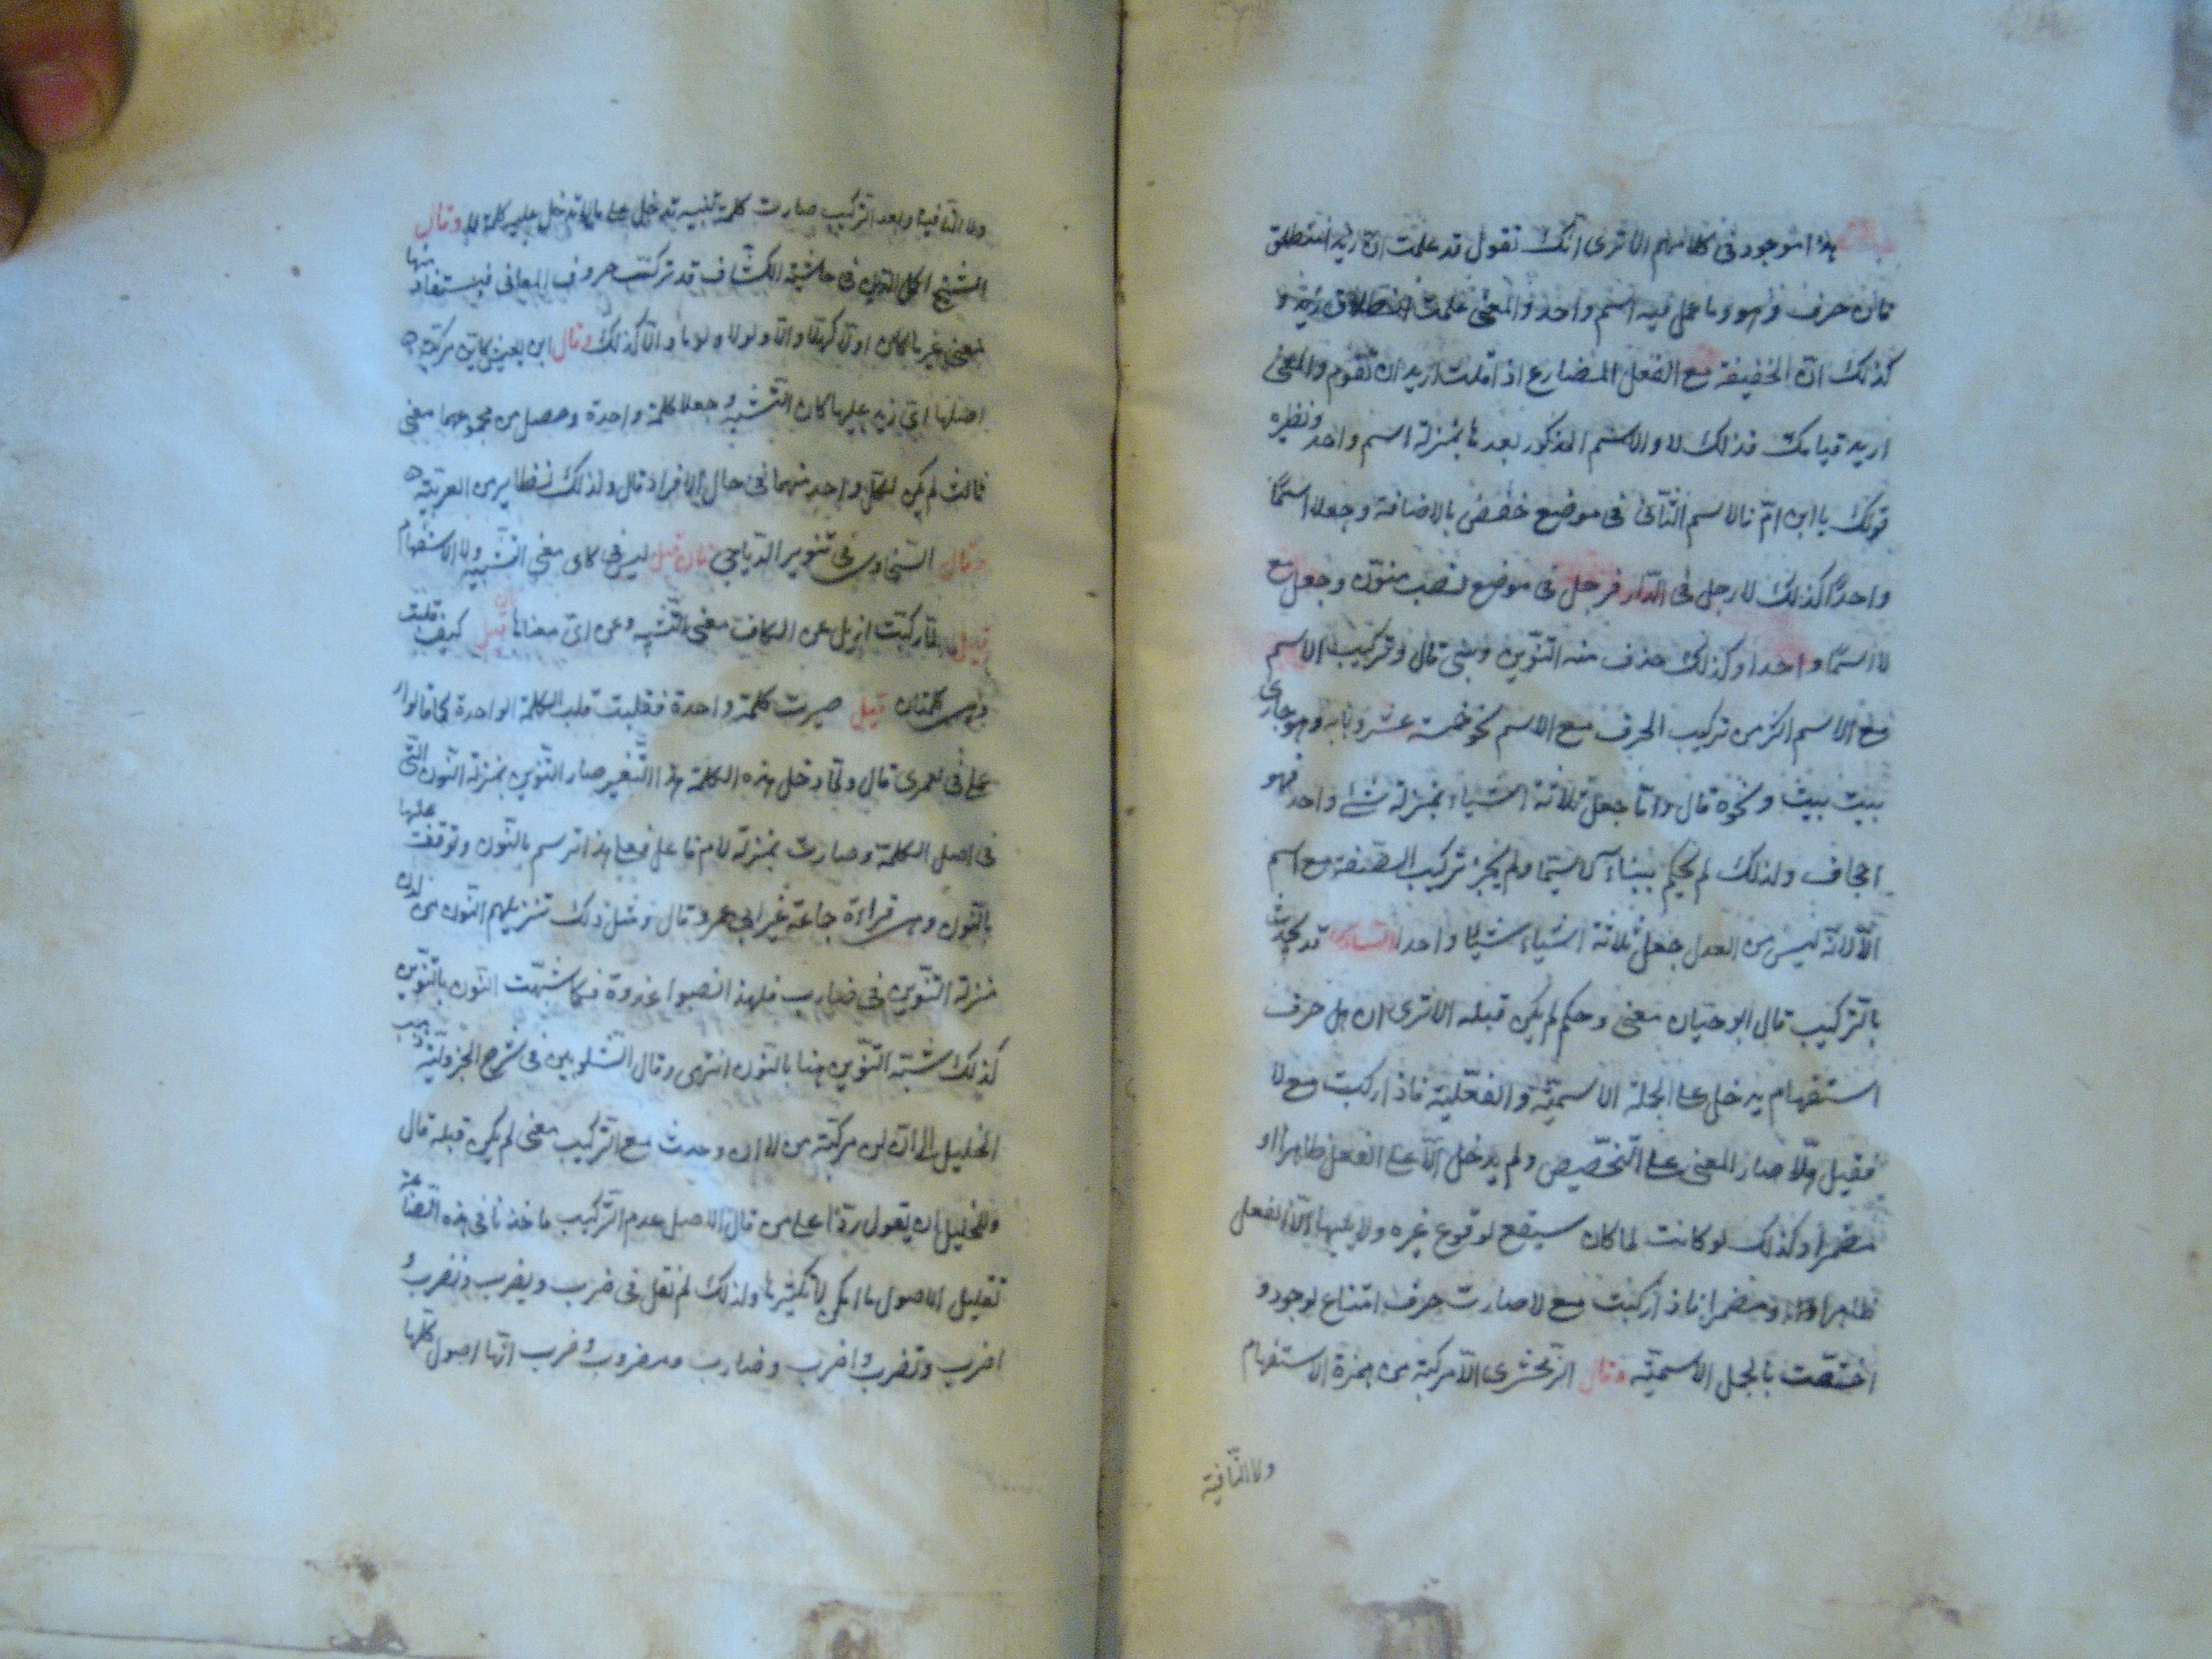 هذا موجود فى كلامهم الا ترى انك تقول قد علمت ان زيدا منطلق
فان حرف وهو وما عمل فيه اسم واحد والمعنى علمت انطلاق زيد و
كذلك ان الخفيفة مع الفعل المضارع اذا قلت اريد ان تقوم والمعنى
اريد قيامك فذلك لا والاسم المذكور بعدها بمنزلة اسم واحد ونظيره
قولك يا ابن امّ فالاسم الثانى فى موضع خفض بالاضافة وجعلا اسمًا
واحدًا كذلك لا رجل فى الدار فرجل فى موضع نصب منون وجعل مع
لا اسمًا واحدا وكذلك حذف منه التنوين وبنى قال وتركيب الاسم
مع الاسم اكثر من تركيب الحرف مع الاسم نحو خمسة عشر وبابه وهو جارى
بيت بيت ونحوه قال وامّا جعل ثلاثة اشياء بمنزلة شئ واحد فهو
اجحاف ولذلك لم يحكم ببناء لا سيما ولم يجز تركيب الصفة مع اسم
لا لانه ليس من العدل جعل ثلاثة اشياء شيئا واحدا قد يحدث
بالتركيب قال ابو حيان معنى وحكم لم يكن قبله الا ترى ان هل حرف
استفهام يدخل على الجملة الاسميّة والفعليّة فاذا ركبت مع لا
فقيل هلّا صار المعنى على التخصيص ولم يدخل الّا على الفعل ظاهرا او
مضمرا وكذلك لو كانت لما كان سيقع لوقوع غيره ولا يليها الّا الفعل
ظاهرا او مضمرا فاذا ركبت مع لا صارت حرف امتناع لوجود و
اختصّت بالجمل الاسميّة وقال الزمخشرى الّا مركبة من همزة الاستفهام
ولا النّافية
ولا النّافية وبعد التركيب صارت كلمة تنبيه تدخل على ما لا تدخل عليه كلمة لا وقال
الشيخ اكمل الدين فى حاشية الكشّاف قد تركب حروف المعانى فيستفاد منها
معنى غير ما كان اولا كهلّا والّا ولولا ولوما والّا كذلك وقال ابن يعيش كاين مركّبة
اصلها اىّ زيد عليها كاف التشبيه وجعلا كلمة واحدة وحصل من مجموعهما معنى
ثالث لم يكن لكل واحد منهما فى حال الافراد قال ولذلك نظاير من العربيّة
وقال السّخاوى فى تنوير الدياجى فان قيل ليس فى كاى معنى التشبيه ولا الاستفهام
قيل لمّا ركبت ازيل عن الكاف معنى التشبيه وعن اىّ معناها قيل كيف قلبت
وهى كلمتان قيل صيرت كلمة واحدة فقلبت قلب الكلمة الواحدة كما قالوا
فى لعمرى قال ولمّا دخل هذه الكلمة هذا التغير صار التنوين بمنزلة النون التى
فى اصل الكلمة وصارت بمنزلة لام فاعل فعلى هذا ترسم بالنّون وتوقف عليها
بالنّون وهى قراءة جماعة غير ابى عمرو قال ومثل ذلك تنزيلهم النون من لدن
منزلة التنوين فى ضارب فلهذا نصبوا غدوة فكما شبّهت النون بالتنوين
كذلك شبّه التنوين هنا بالنون انتهى وقال الشلوبين فى شرح الجزوليّة ذهب
الخليل الى ان لن مركبة من لا ان وحدث مع التركيب معنى لم يكن قبله قال
وللخليل ان يقول ردّا على من قال الاصل عدم التركيب ماخذنا فى هذه الصّناعة
تقليل الاصول ما امكن لا تكثيرها ولذلك لم نقل فى ضرب ويضرب ونضرب و
اضرب وتضرب واضرب وضارب ومضروب وضرب انّها اصول كلّها